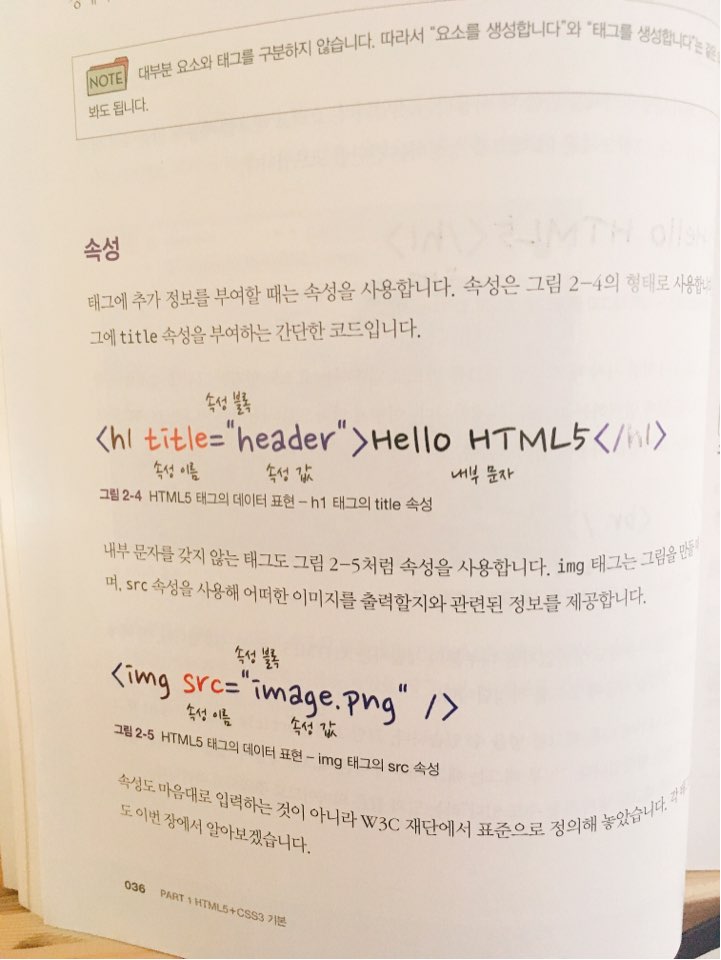 NOTE 대부분 요소와 태그를 구분하지 않습니다. 따라서 "요소를 생성합니다"와 "태그를 생성합니다"는 같은
봐도 됩니다.
속성
태그에 추가 정보를 부여할 때는 속성을 사용합니다. 속성은 그림 2-4의 형태로 사용합니
그에 title 속성을 부여하는 간단한 코드입니다.
속성 블록
<h1 title="header">Hello HTML5</h1>
속성 이름 속성 값 내부 문자
그림 2-4 HTML5 태그의 데이터 표현 – h1 태그의 title 속성
내부 문자를 갖지 않는 태그도 그림 2-5처럼 속성을 사용합니다. img 태그는 그림을 만들
며, src 속성을 사용해 어떠한 이미지를 출력할지와 관련된 정보를 제공합니다.
속성 블록
<img src="image.png" />
속성 이름 속성 값
그림 2-5 HTML5 태그의 데이터 표현 – img 태그의 src 속성
속성도 마음대로 입력하는 것이 아니라 W3C 재단에서 표준으로 정의해 놓았습니다.
도 이번 장에서 알아보겠습니다.
036 PART 1 HTML5+CSS3 기본